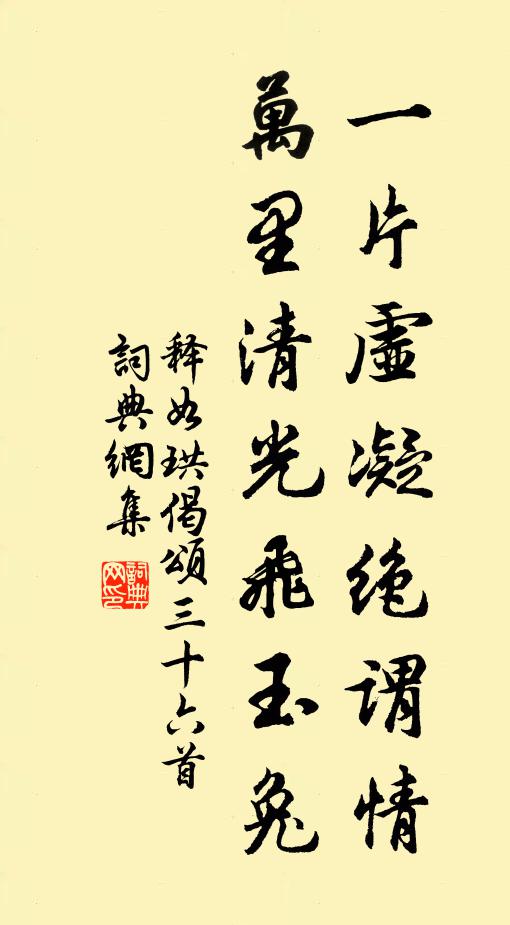 一片虛凝絕謂情
萬里清光飛玉兔
释如珙偈頌三十六首
詞典網集
詞典網印